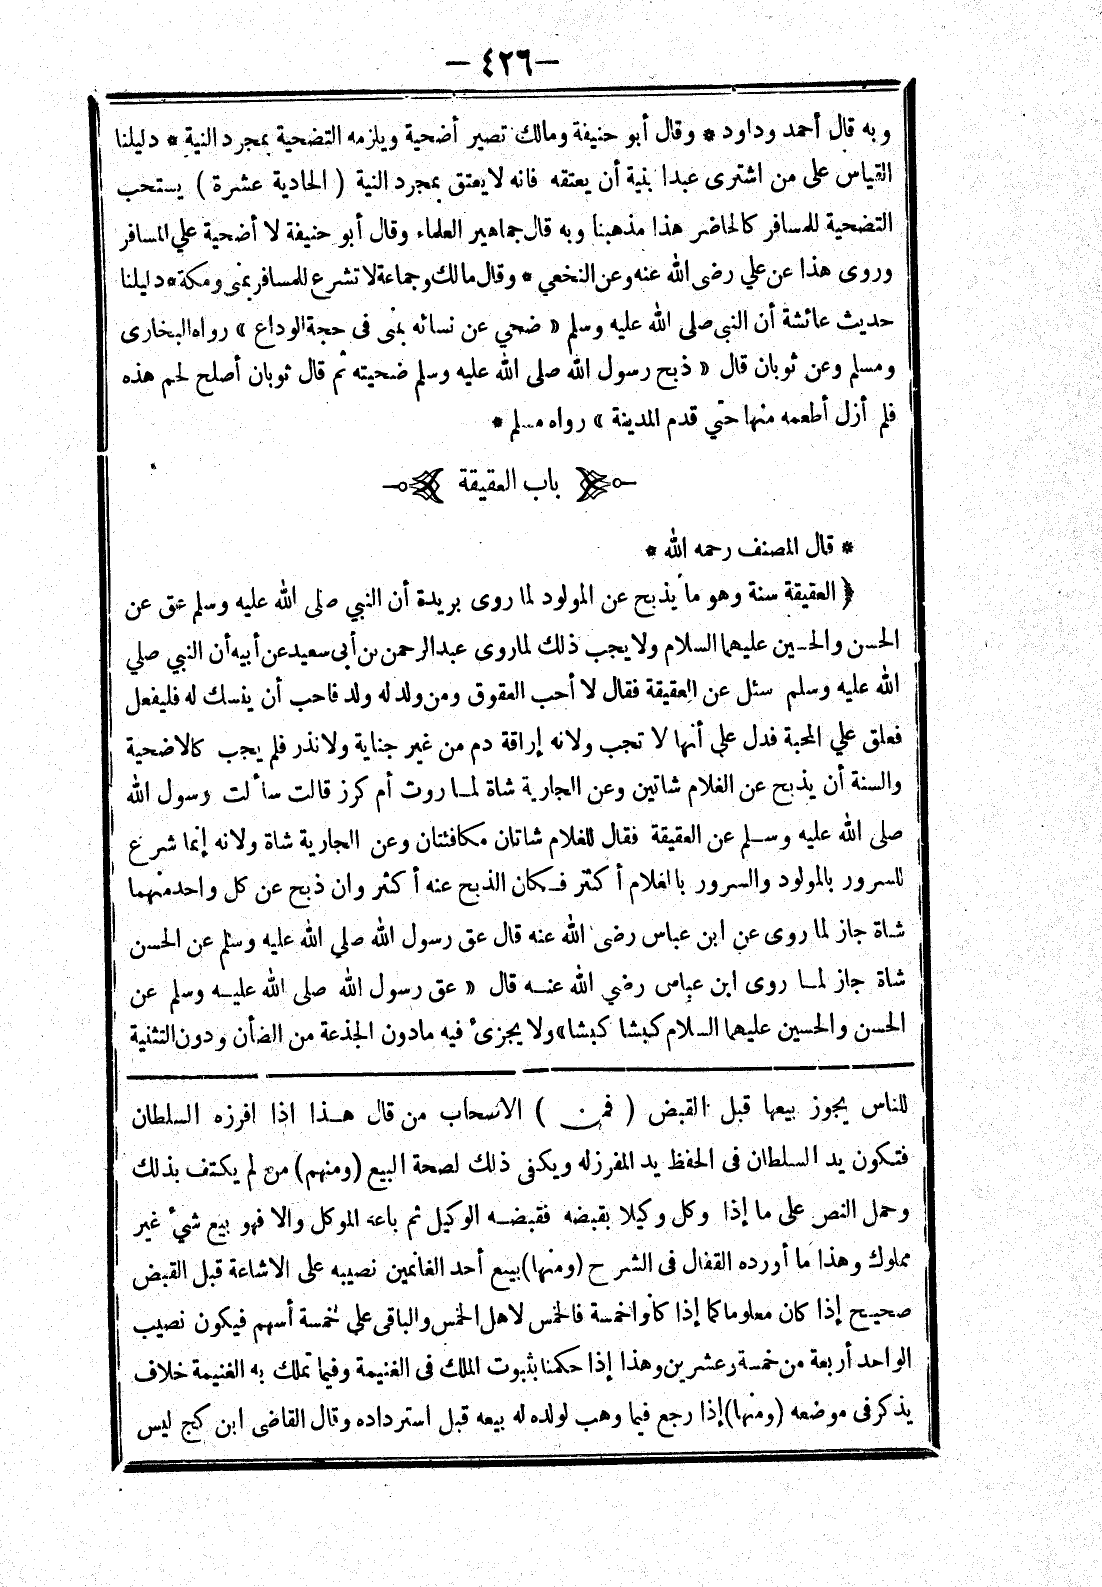 — ٤٢٦ —
وبه قال أحمد وداود * وقال أبو حنيفة ومالك تصير أضحية ويلزمه التضحية بمجرد النية * دليلنا
القياس على من اشترى عبدا بنية أن يعتقه فانه لا يعتق بمجرد النية ( الحادية عشرة ) يستحب
التضحية للمسافر كالحاضر هذا مذهبنا وبه قال جماهير العلماء وقال أبو حنيفة لا أضحية علي المسافر
وروى هذا عن علي رضى الله عنه وعن النخعي * وقال مالك وجماعة لا تشرع للمسافر بمنى ومكة * دليلنا
حديث عائشة أن النبي صلى الله عليه وسلم « ضحي عن نسائه بمنى فى حجة الوداع » رواه البخارى
ومسلم وعن ثوبان قال « ذبح رسول الله صلى الله عليه وسلم ضحيته ثم قال ثوبان أصلح لحم هذه
فلم أزل أطعمه منها حتي قدم المدينة » رواه مسلم *
باب العقيقة
* قال المصنف رحمه الله *
﴿ العقيقة سنة وهو ما يذبح عن المولود لما روى بريدة أن النبي صلى الله عليه وسلم عق عن
الحسن والحسين عليهما السلام ولا يجب ذلك لما روى عبد الرحمن بن أبى سعيد عن أبيه أن النبي صلي
الله عليه وسلم سئل عن العقيقة فقال لا أحب العقوق ومن ولد له ولد فاحب أن ينسك له فليفعل
فعلق علي المحبة فدل علي أنها لا تجب ولانه إراقة دم من غير جناية ولا نذر فلم يجب كالاضحية
والسنة أن يذبح عن الغلام شاتين وعن الجارية شاة لما روت أم كرز قالت سألت رسول الله
صلى الله عليه وسلم عن العقيقة فقال للغلام شاتان مكافئتان وعن الجارية شاة ولانه إنما شرع
للسرور بالمولود والسرور بالغلام أكثر فكان الذبح عنه أكثر وان ذبح عن كل واحد منهما
شاة جاز لما روى عن ابن عباس رضى الله عنه قال عق رسول الله صلي الله عليه وسلم عن الحسن
شاة جاز لما روى ابن عباس رضي الله عنه قال « عق رسول الله صلى الله عليه وسلم عن
الحسن والحسين عليهما السلام كبشا كبشا» ولا يجزئ فيه مادون الجذعة من الضأن ودون التثنية
للناس يجوز بيعها قبل القبض ( فمن ) الاصحاب من قال هذا اذا افرزه السلطان
فتكون يد السلطان فى الحفظ يد المفرز له ويكفى ذلك لصحة البيع (ومنهم) من لم يكتف بذلك
وحمل النص على ما إذا وكل وكيلا بقبضه فقبضه الوكيل ثم باعه الموكل والا فهو بيع شيء غير
مملوك وهذا ما أورده القفال فى الشرح (ومنها) بيع أحد الغانمين نصيبه على الاشاعة قبل القبض
صحيح إذا كان معلوما كما إذا كانوا خمسة فالخمس لاهل الخمس والباقى علي خمسة أسهم فيكون نصيب
الواحد أربعة من خمسة وعشرين وهذا إذا حكمنا بثبوت الملك فى الغنيمة وفيما تملك به الغنيمة خلاف
يذكر فى موضعه (ومنها) إذا رجع فيما وهب لولده له بيعه قبل استرداده وقال القاضى ابن كج ليس